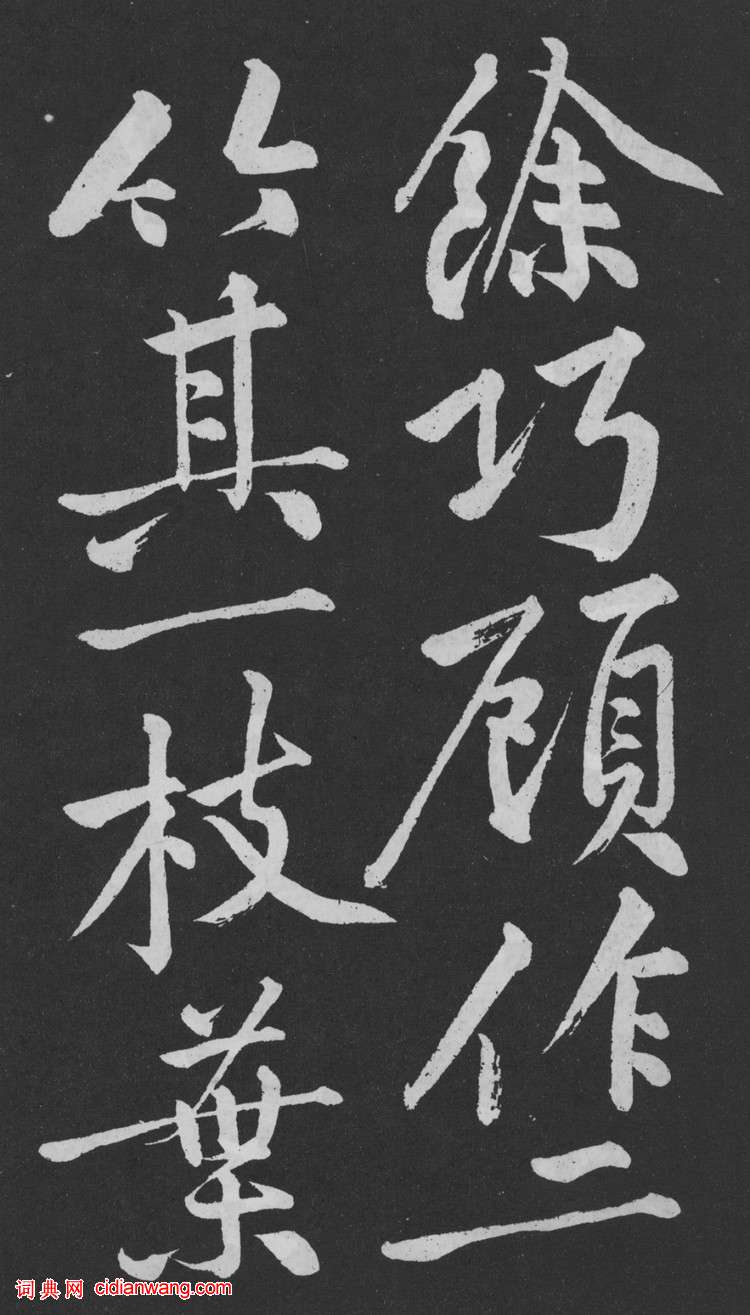 餘巧顧作二
竹其一枝葉
词典网 cidianwang.com